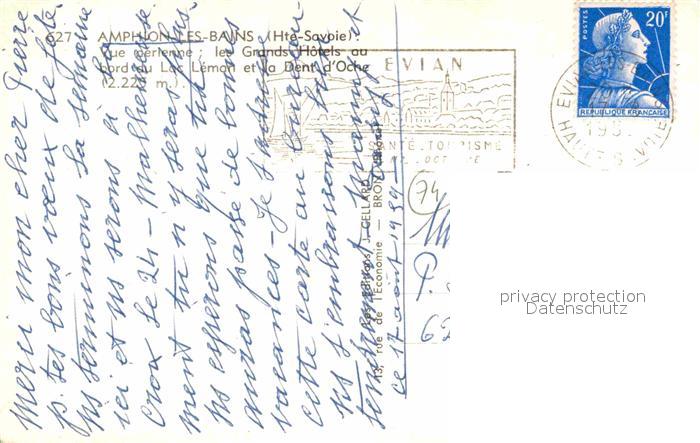 627 AMPHION-LES-BAINS (Hte-Savoie).
Vue aérienne : les Grands Hôtels au
bord du Lac Léman et la Dent d'Oche
(2.225 m.)
EVIAN
SANTÉ. TOURISME
20F
POSTES
REPUBLIQUE FRANÇAISE
EVIAN
Merci mon cher Pierre
p. tes bons vœux de fête
ns terminons la semaine
ici et ns serons à la
Croix le 24 - Malheureuse
ment tu n'y seras plus
ns espérons que tu
auras passé de bonnes
vacances - Je t'adresse
cette carte au
ns t'embrassons très
tendrement
ce 17 août 1959
Les Editions J. CELLARD
13, rue de l'Economie — BRON
74
P.
69
privacy protection
Datenschutz